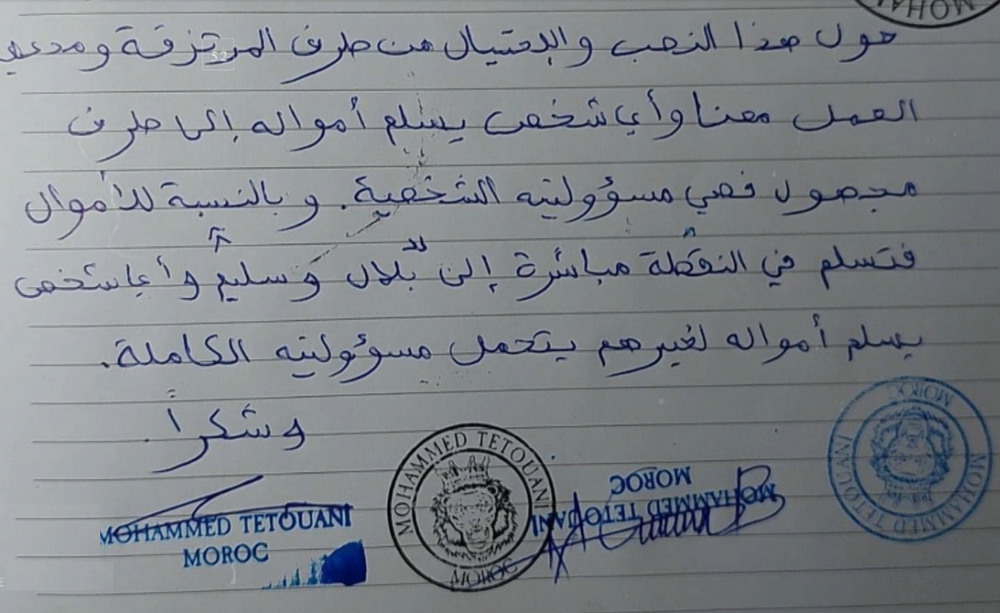 MOHA
حول هذا النصب والإحتيال من طرف المرتزقة ومدعي
العمل معنا وأي شخص يسلم أمواله إلى طرف
مجهول فهي مسؤوليته الشخصية. وبالنسبة للأموال
فتسلم في النقطة مباشرة إلى "بلال" و "سليم" وأي شخص
يسلم أمواله لغيرهم يتحمل مسؤوليته الكاملة.
وشكراً.
MOHAMMED TETOUANI
MOROC
MOHAMMED TETOUANI
MOROC
MOHAMMED TETOUANI
MOROC
MOHAMMED TETOUANI
MOROC